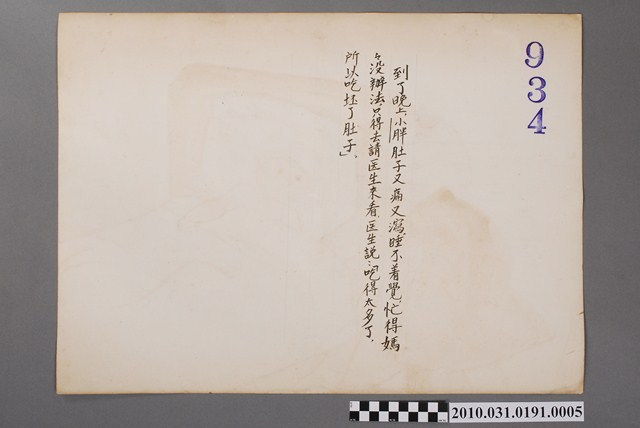 934
到了晚上,小胖肚子又痛又瀉,睡不着覺,忙得媽
々沒辦法,只得去請医生來看,医生説:「吃得太多了,
所以吃坯了肚子」。
2010.031.0191.0005